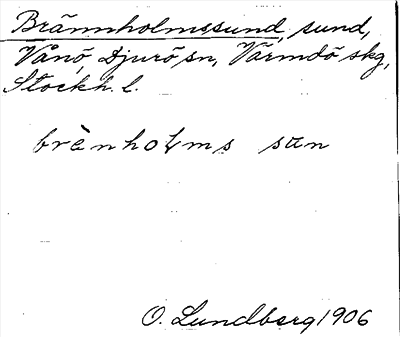 Brännholmssund, sund,
Vånö, Djurö sn, Värmdö skg,
Stockh. l.
brènhoɫms sun
O. Lundberg 1906